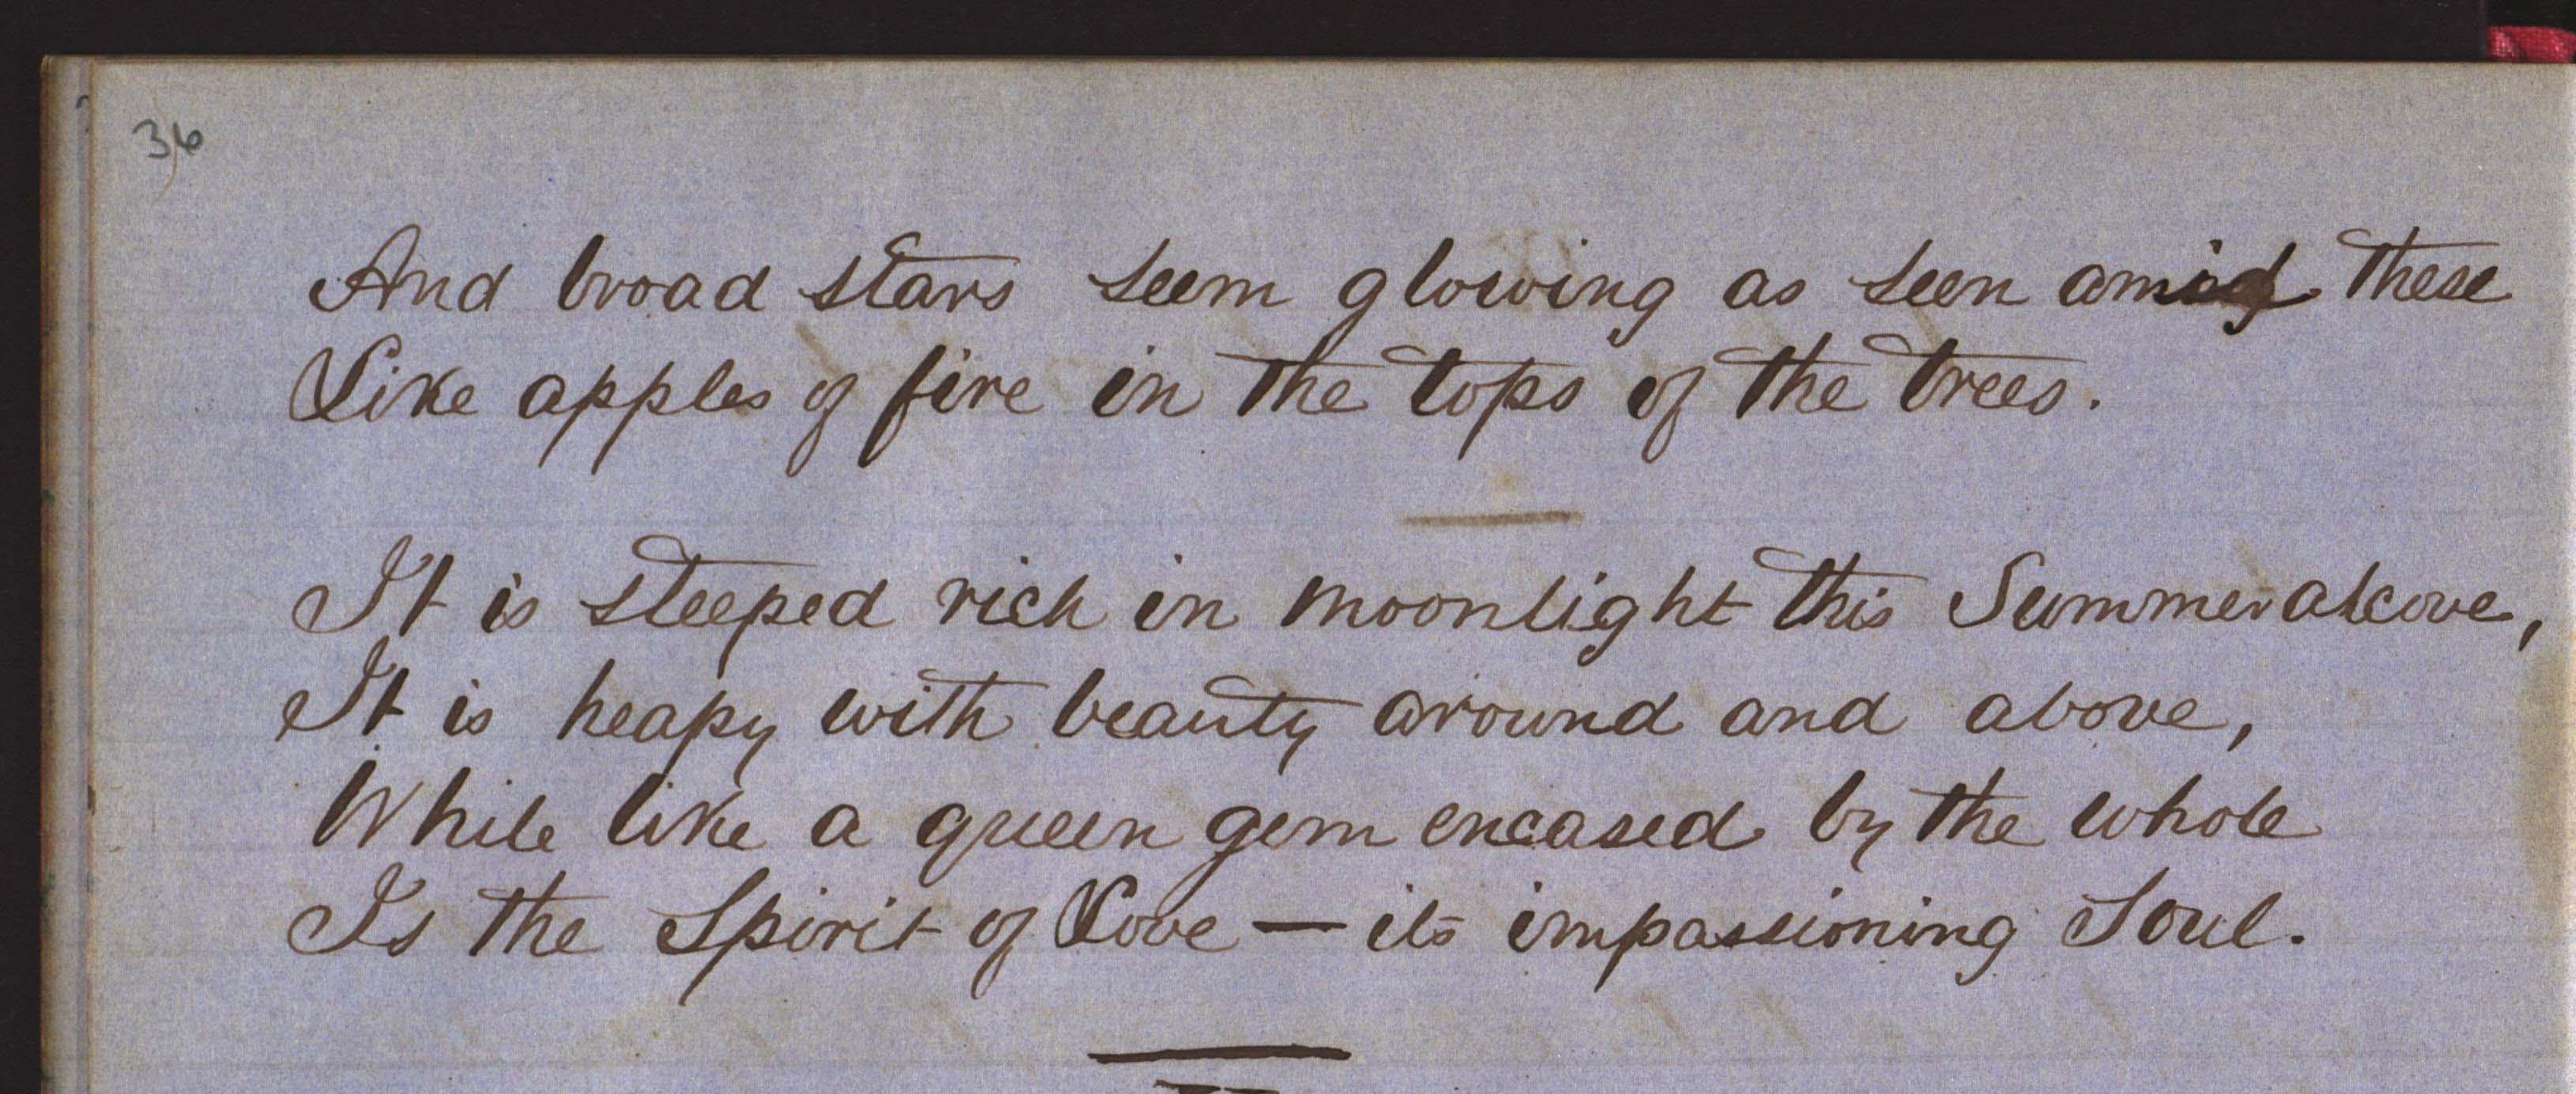 36
And broad stars seem glowing as seen amid these
Like apples of fire in the tops of the trees.
It is steeped rich in moonlight this Summer alcove,
It is heapy with beauty around and above,
While like a queen gem encased by the whole
Is the Spirit of Love — its impassioning Soul.